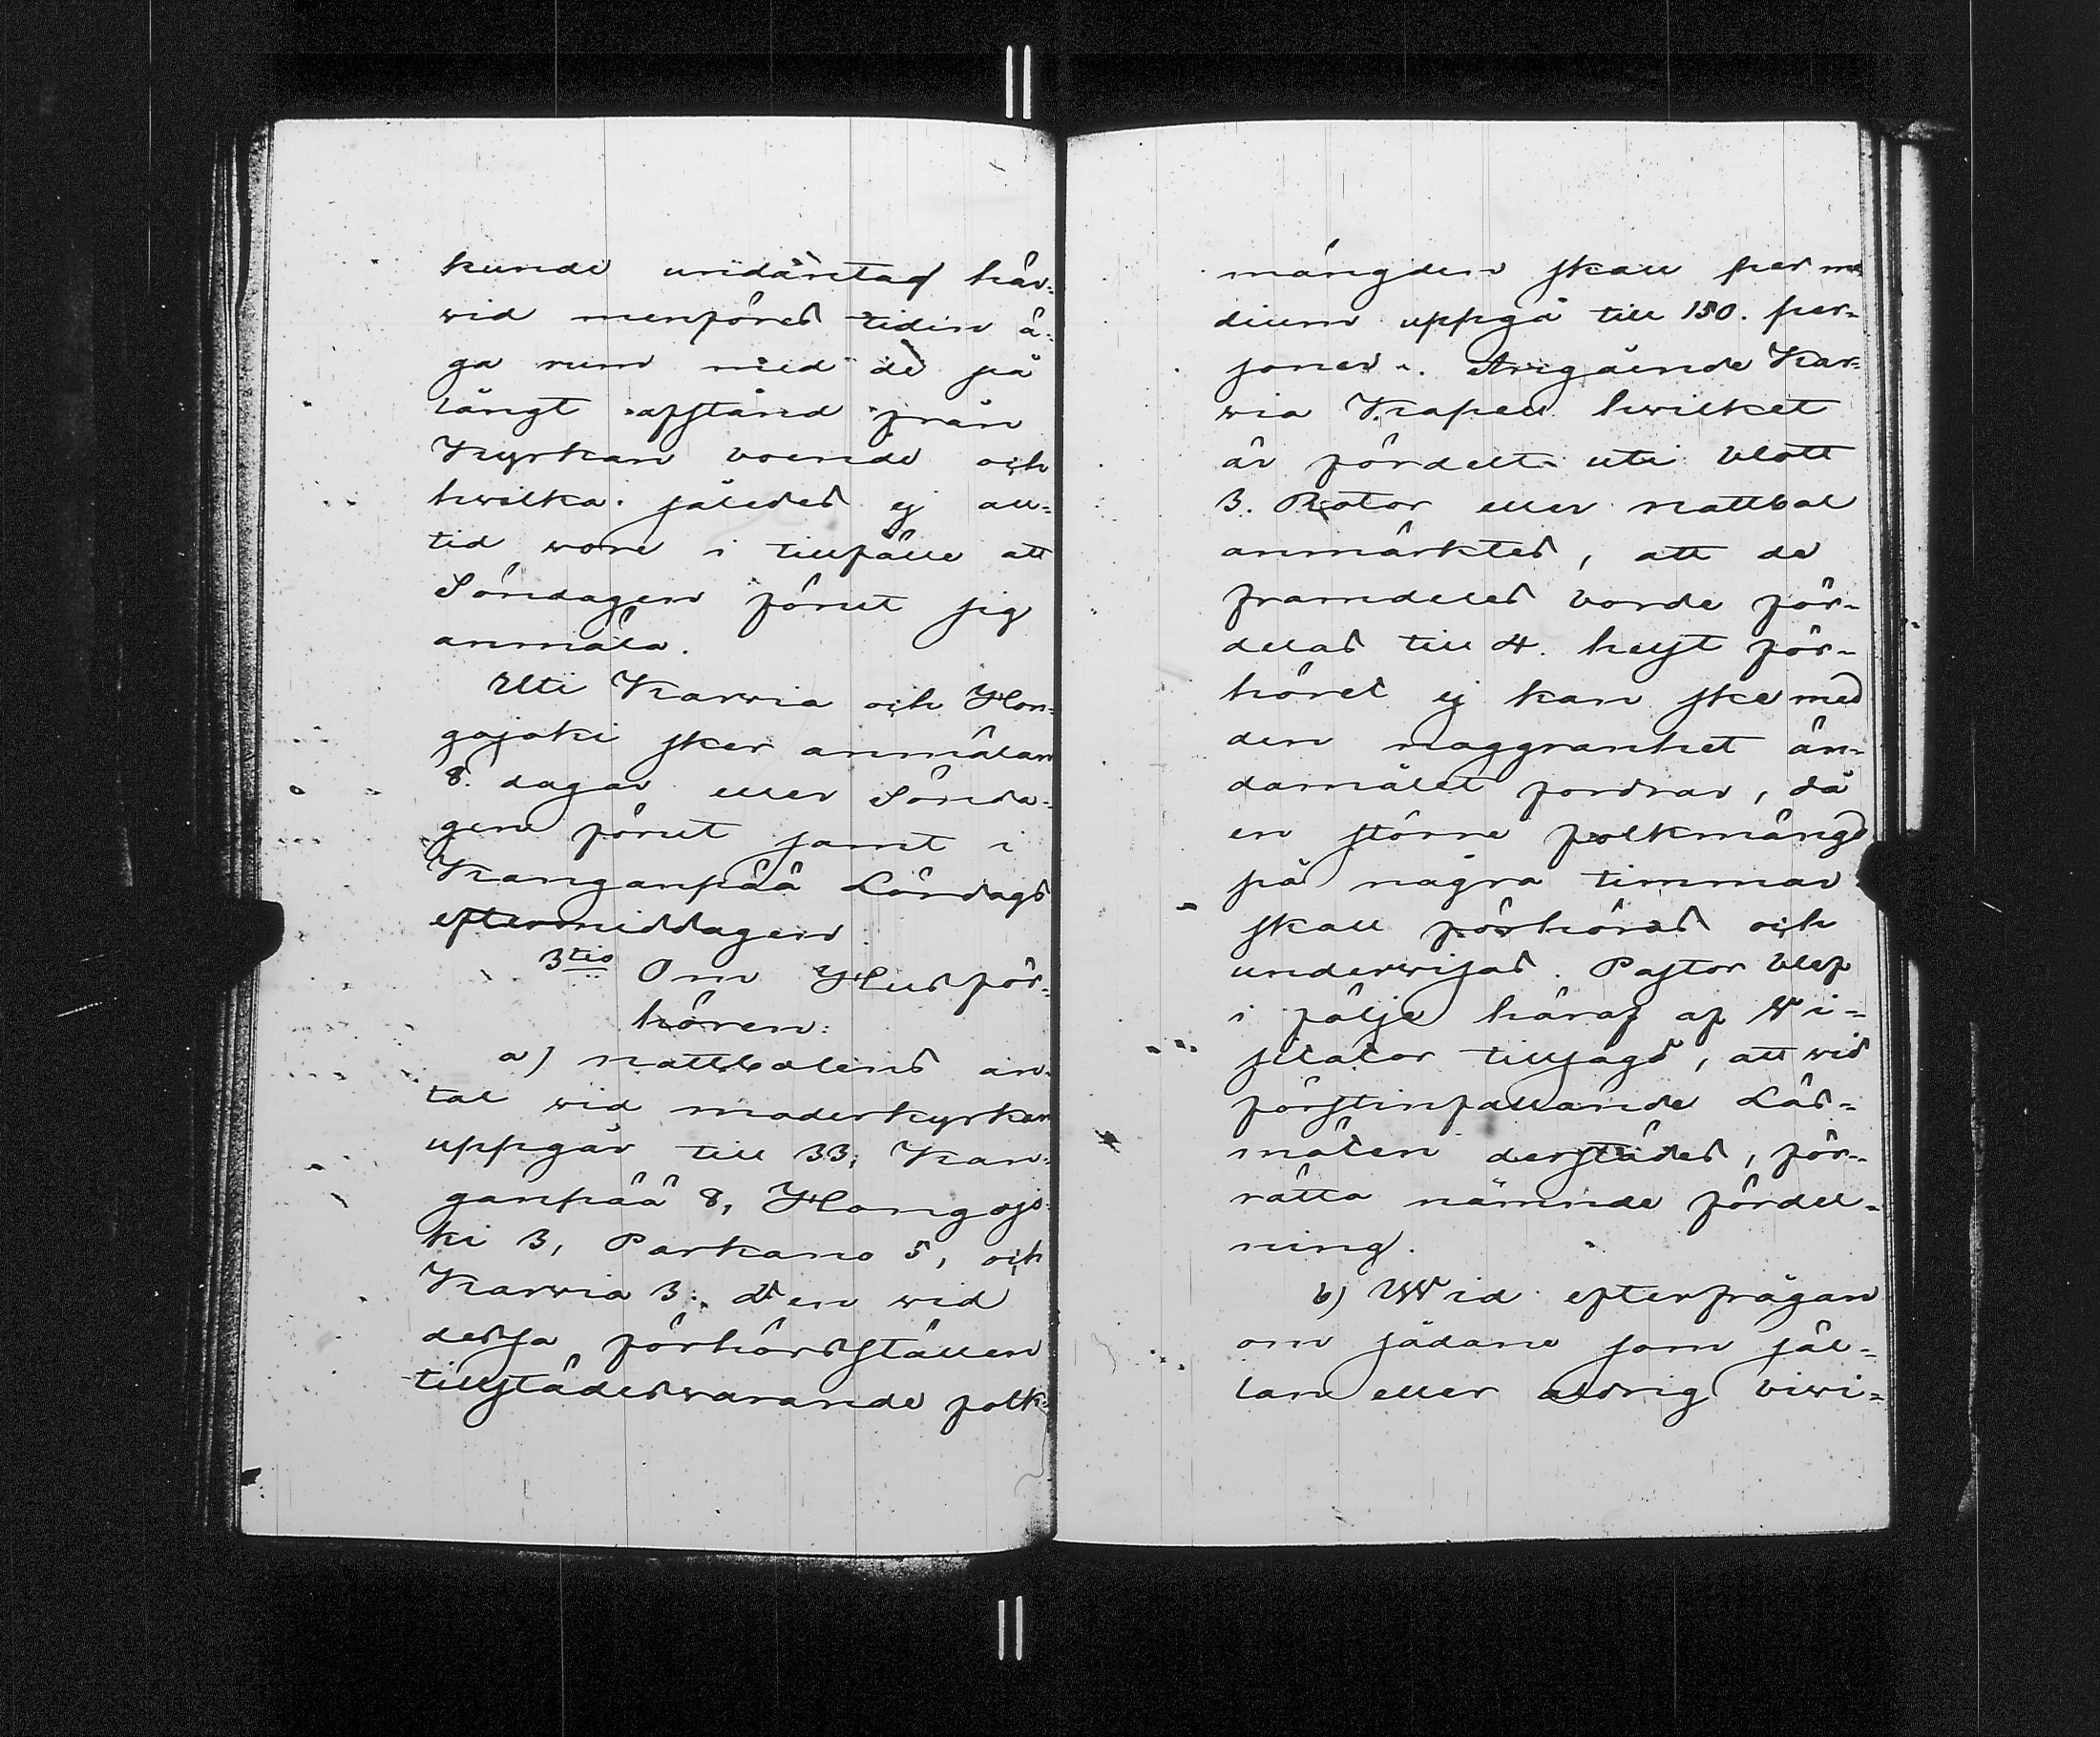 kunde undantag här-
wid menföres tiden ä-
ga rum med de på
långt afstånd från
Kyrkan boende och
hwilka således ej all-
tid wore i tillfälle att
Söndagen förut sig
anmäla.
Uti Karvia och Hon-
gojoki sker anmälan
8. dagar eller Sönda-
gen förut samt i
Kanganpää Lördags
eftermiddagen
3tio Om Husför-
hören:
a) nattbolens an-
tal wid moderkyrkan
uppgår till 33, Kan-
ganpää 8, Hongojo-
ki 3, Parkano 5, och
Karvia 3. Den wid
dessa förhörsställen
tillstädeswarande folk-
mängden skall per me-
dium uppgå till 150. per-
soner. Angående Kar-
wia Kapell hwilket
är fördelt uti blott
3. Rotor eller nattbol
anmärktes, att de
framdeles borde för-
delas till 4. helst för-
höret ej kan ske med
den noggranhet än-
damålet fordrar, då
en större folkmängd
på några timmar
skall förhöras och
underwisas. Pastor blef
i följe häraf af Wi-
sitator tillsagd, att wid
förstinfallande Läs-
möten derstädes, för-
rätta nämnde fördel-
ning.
b) Wid efterfrågan
om sådane som säl-
lan eller aldrig biwi-